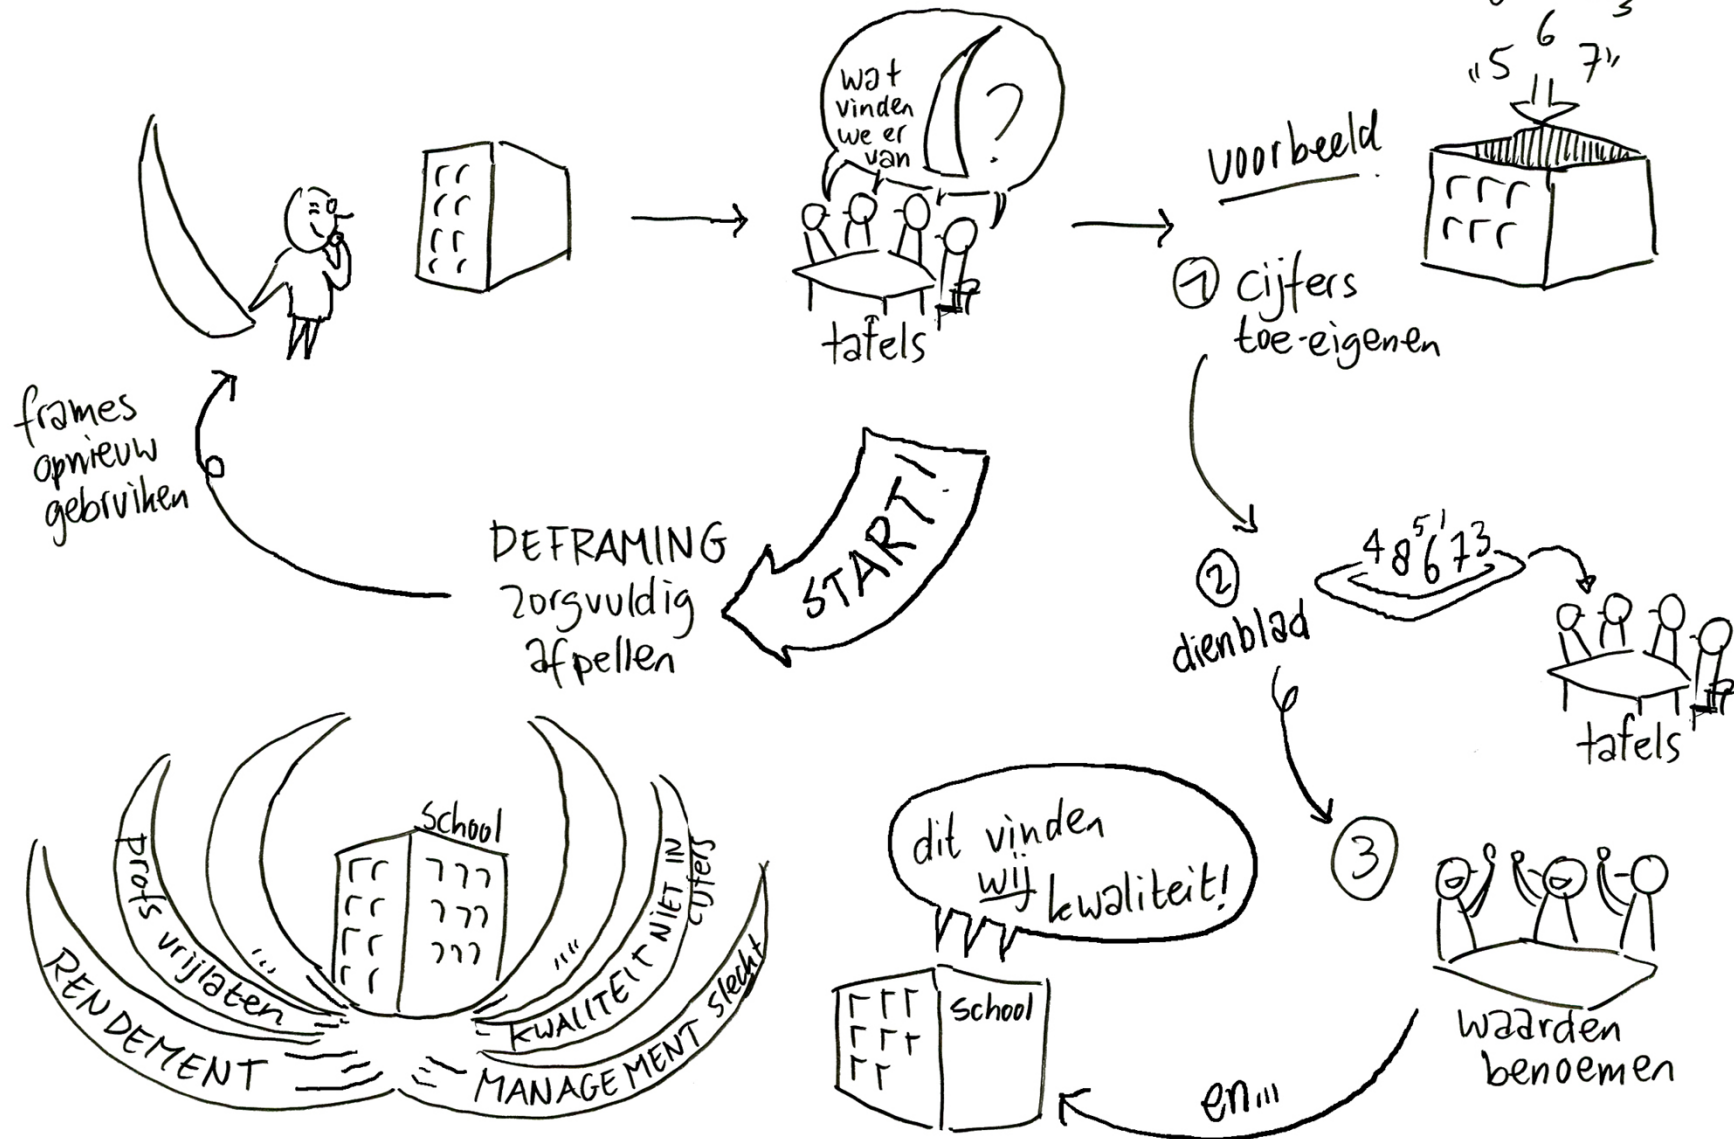 wat
vinden
we er
van
?
tafels
voorbeeld
6
3
"5
7"
① cijfers
toe-eigenen
frames
opnieuw
gebruiken
START!
DEFRAMING
zorgvuldig
afpellen
②
dienblad
4 8 5 6 1 7 3
tafels
③
waarden
benoemen
en...
dit vinden
wij
kwaliteit!
school
School
RENDEMENT
profs vrijlaten
....
....
KWALITEIT NIET IN
cijfers
MANAGEMENT slecht